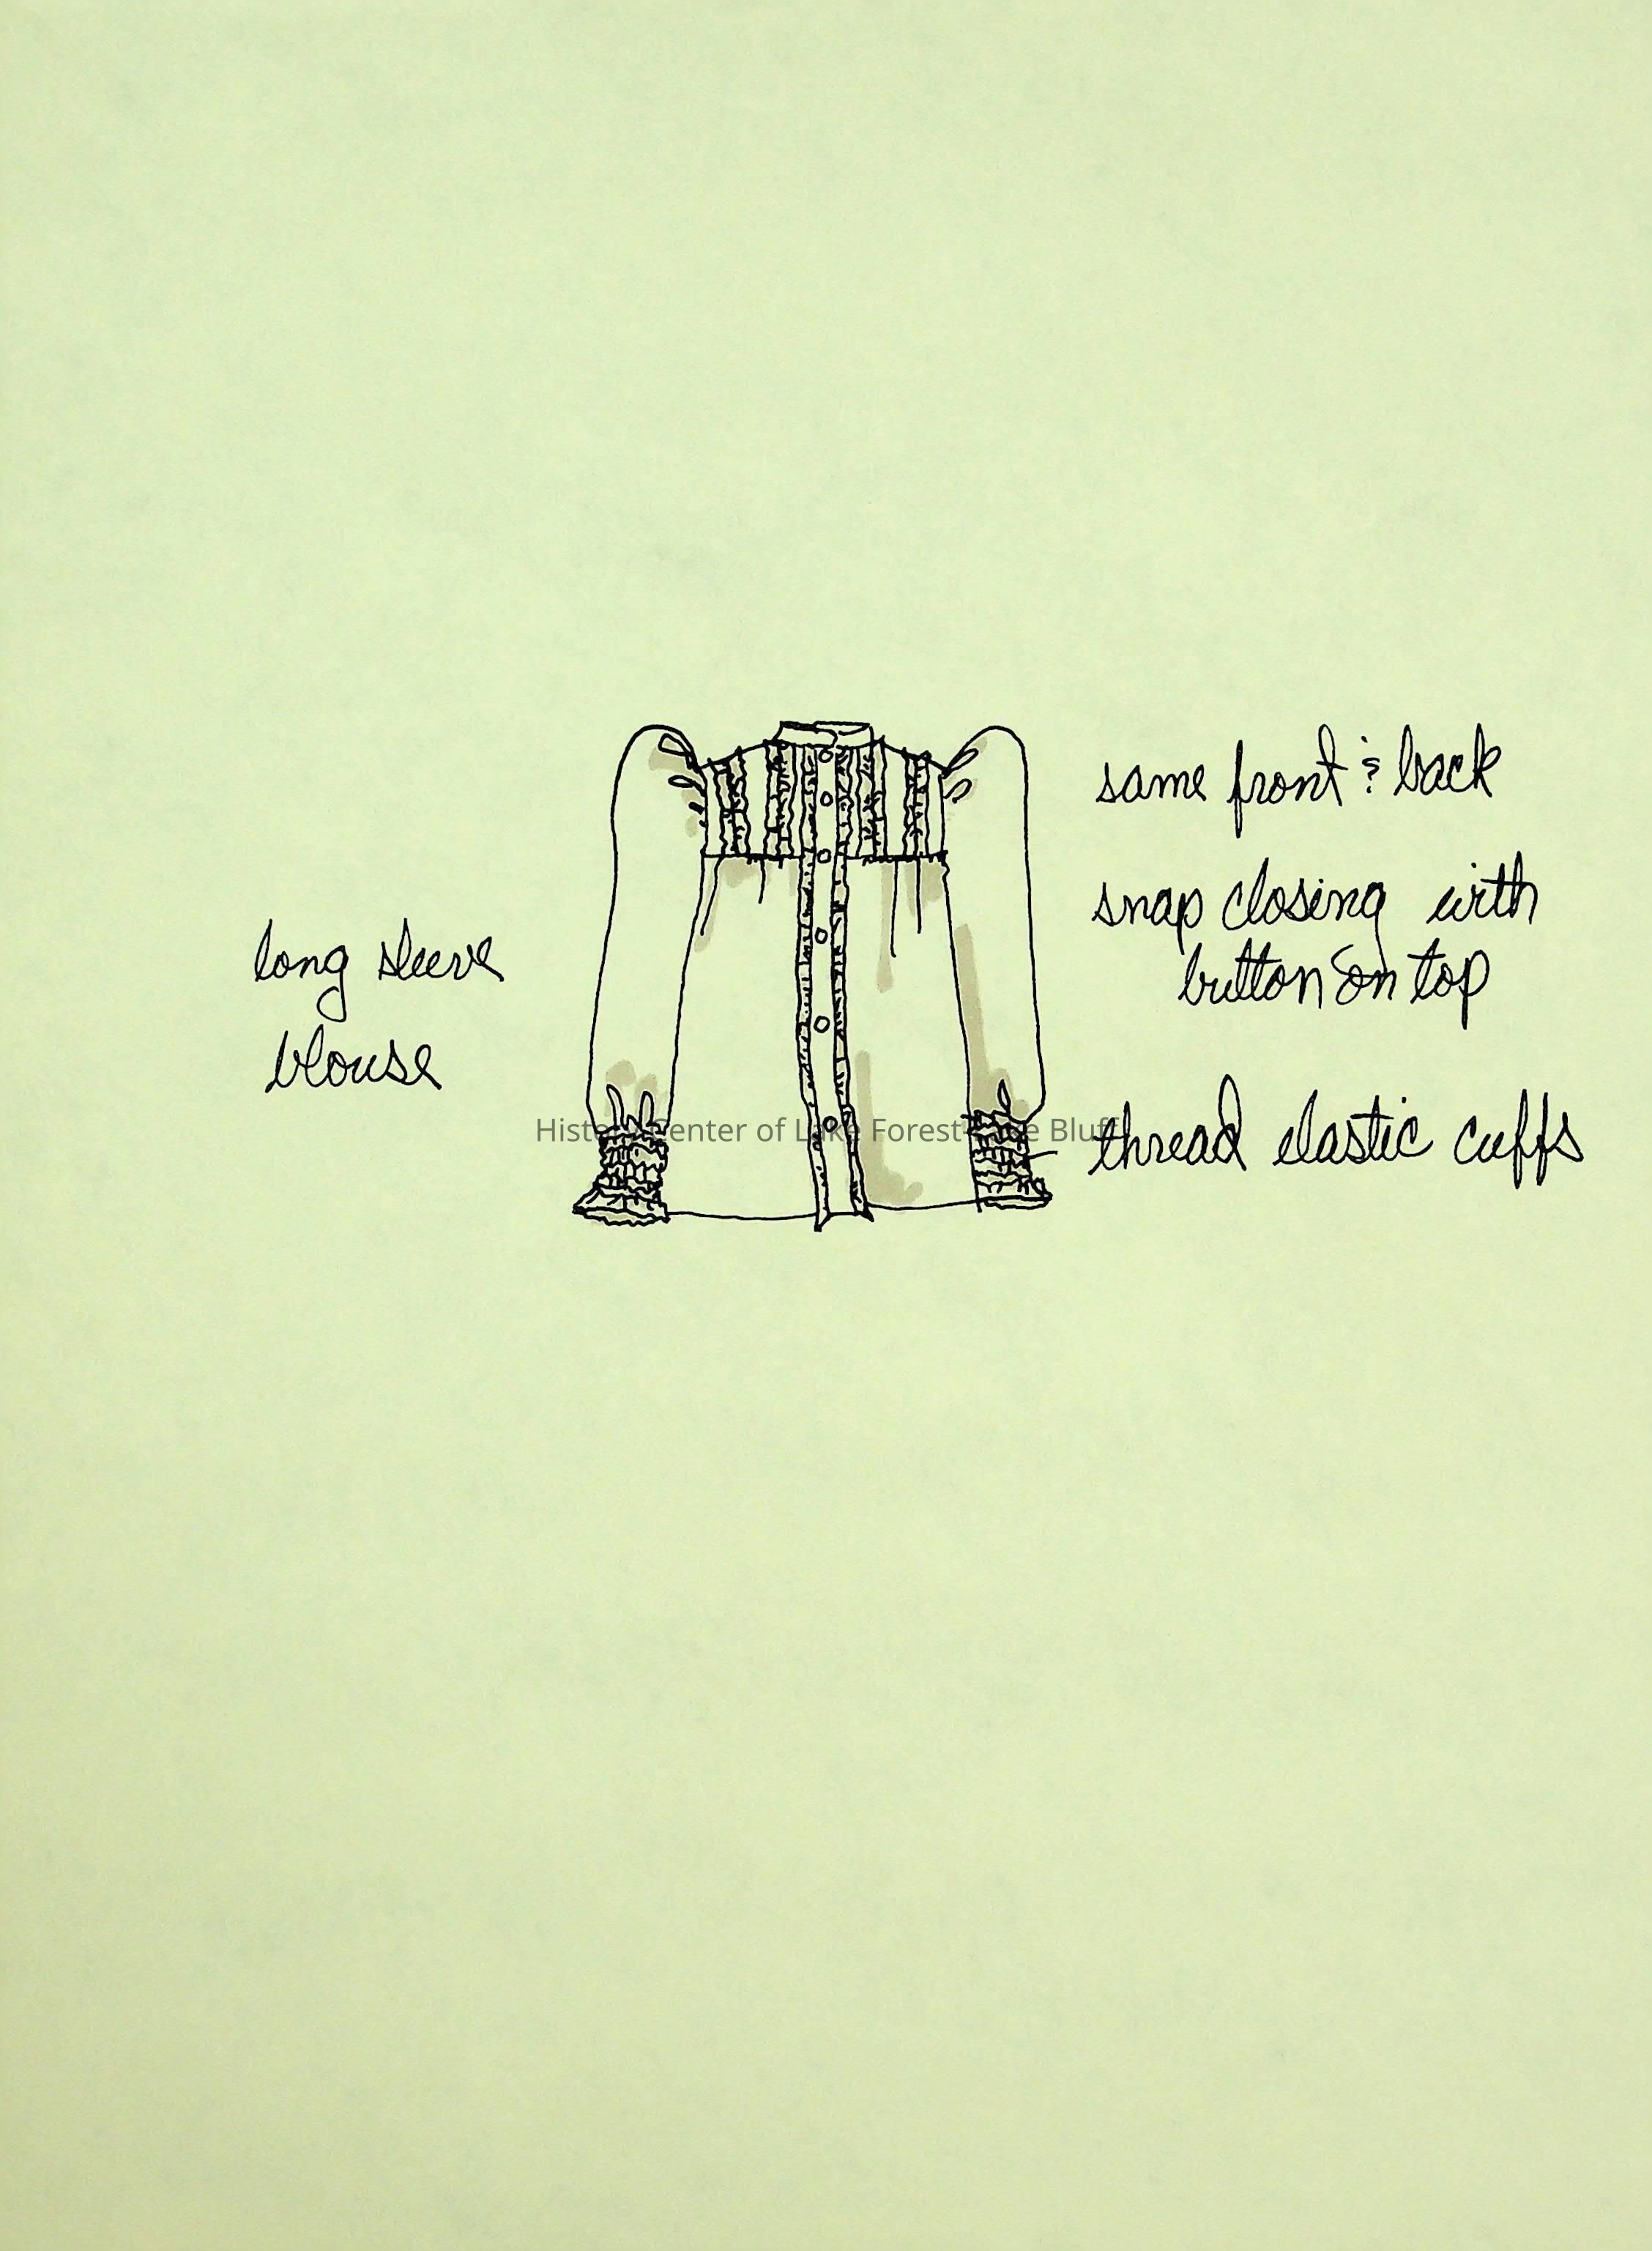 same front & back
snap closing with
button on top
long sleeve
blouse
thread elastic cuffs
History Center of Lake Forest-Lake Bluff